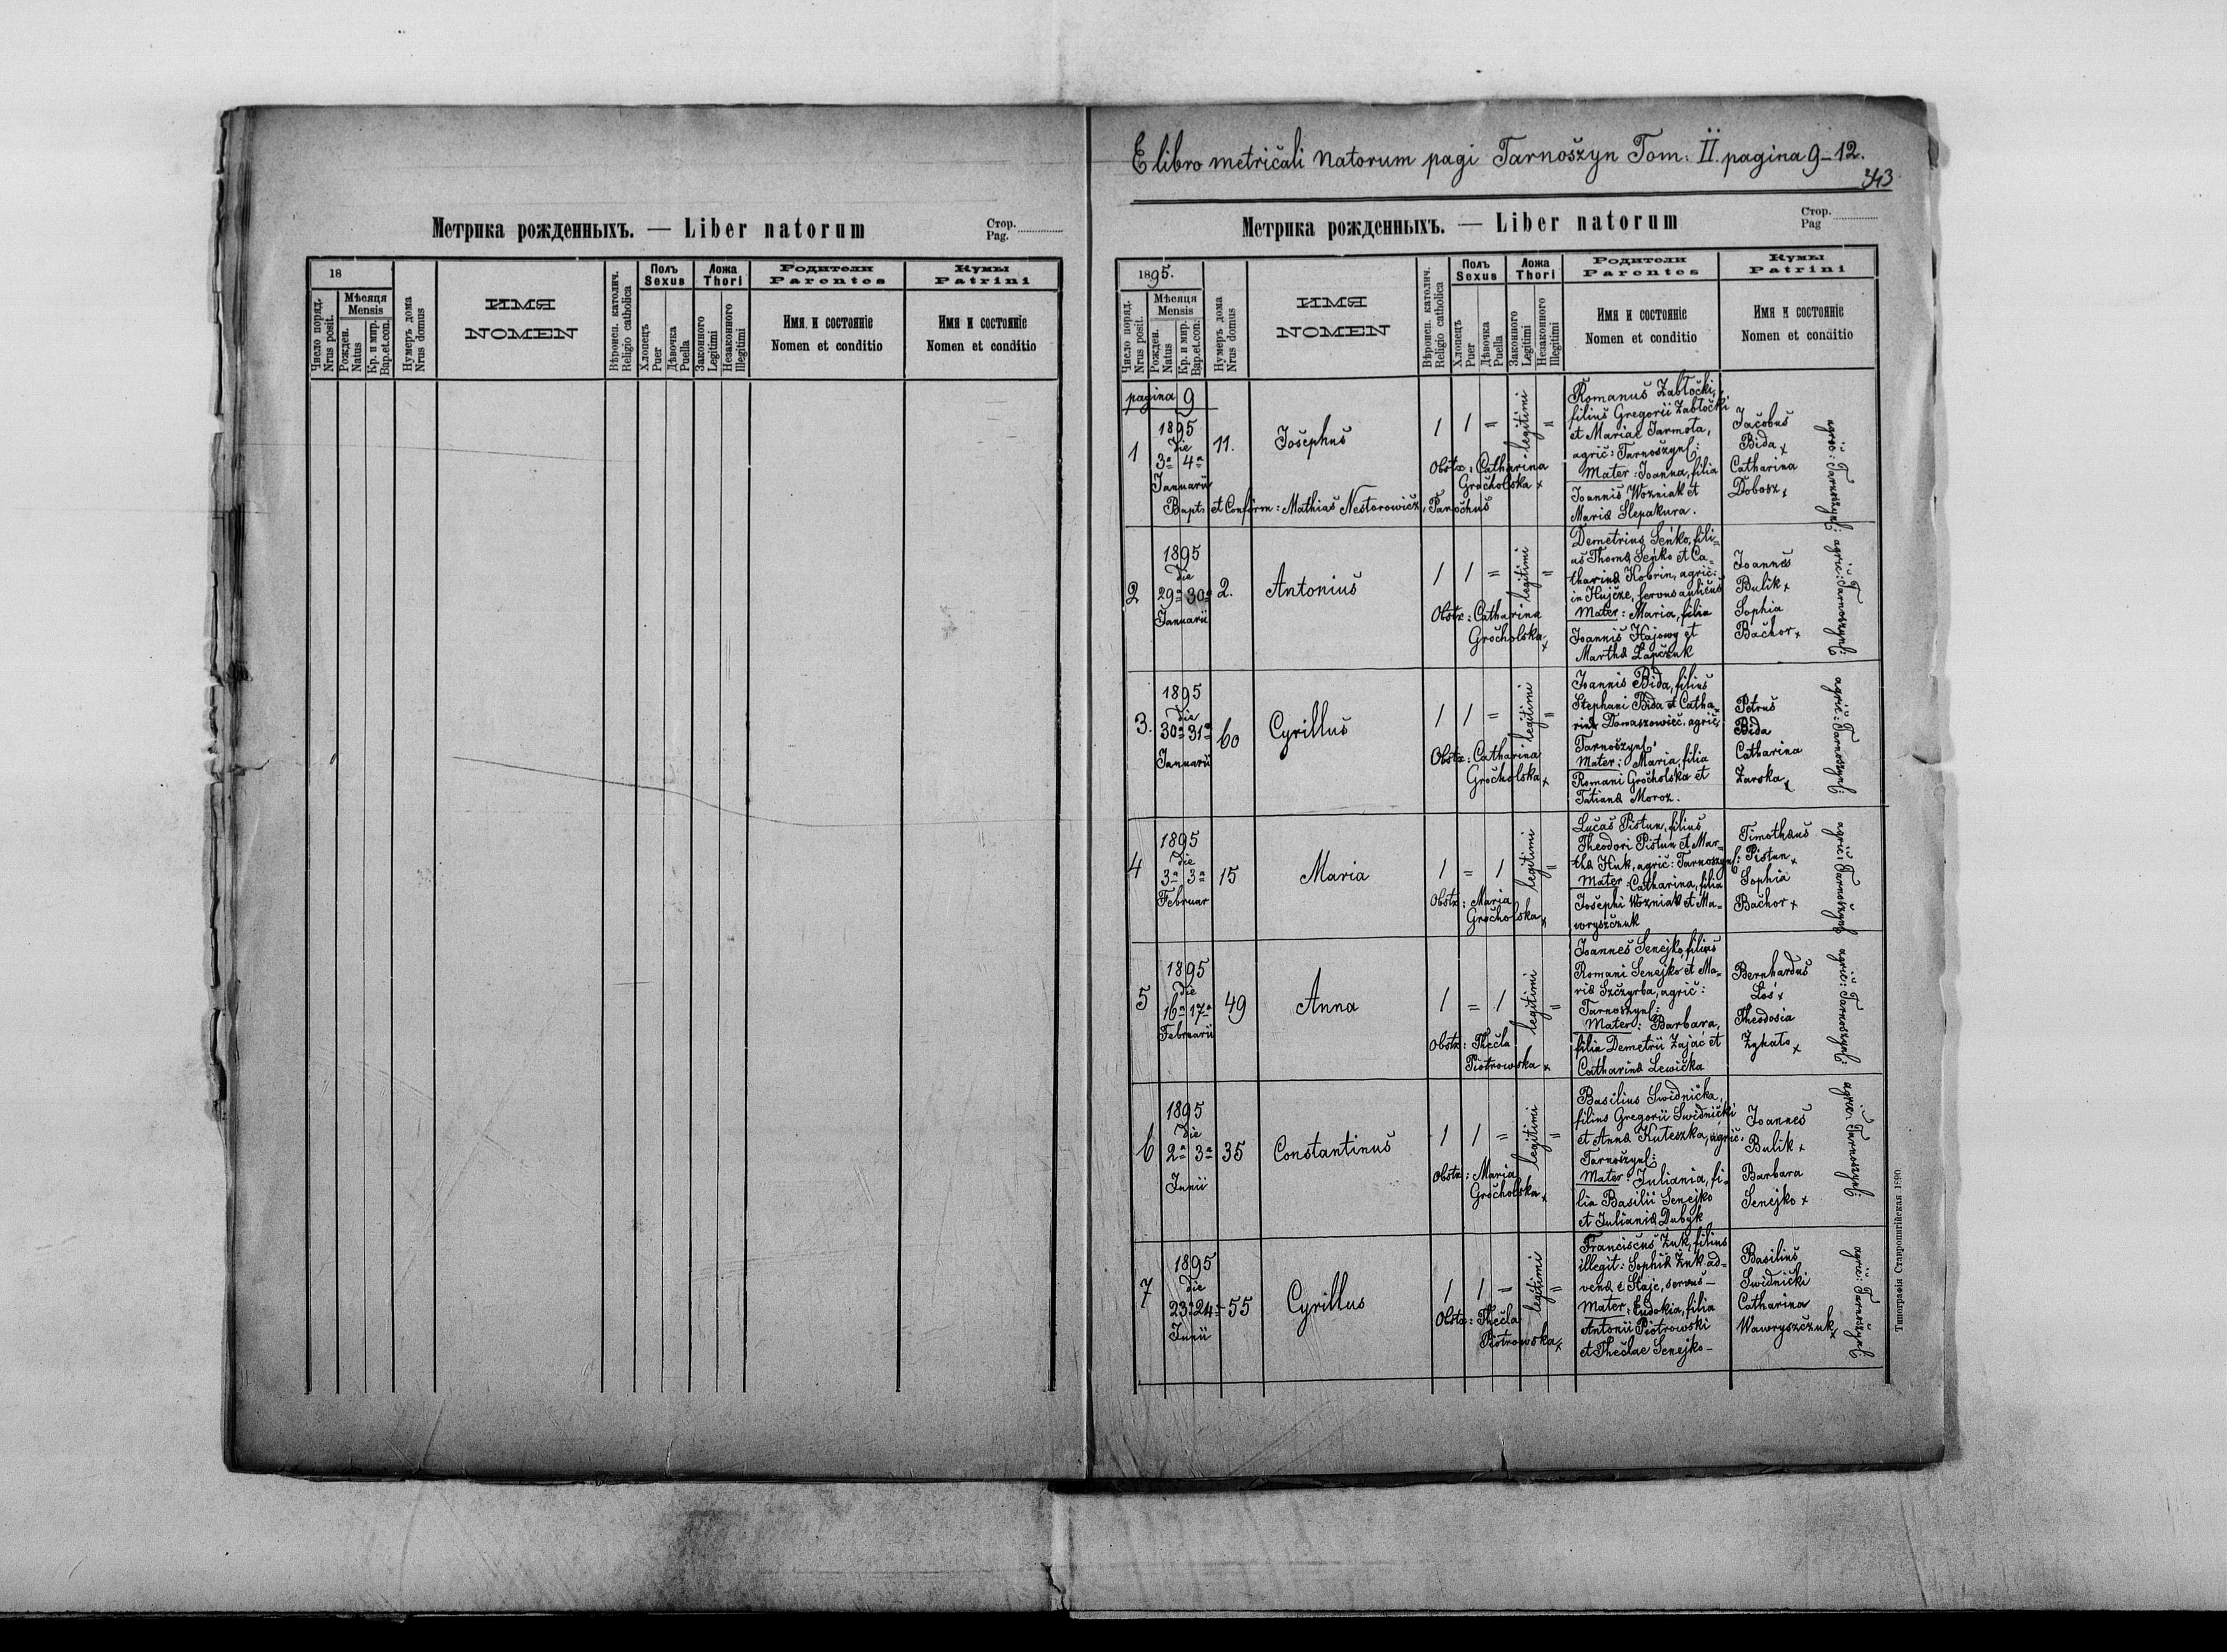 Метрика рожденныхъ. — Liber natorum
Стор.
Pag.
18
Число поряд.
Nrus posit.
Мѣсяця
Mensis
Рожден.
Natus
Кр. и мир.
Bap.et.con.
Нумеръ дома
Nrus domus
ИМЯ
NOMEN
Вѣроисп. католич.
Religio catholica
Полъ
Sexus
Хлопецъ
Puer
Дѣвочка
Puella
Ложа
Thori
Законного
Legitimi
Незаконного
Illegitimi
Родители
Parentes
Имя и состояніе
Nomen et conditio
Кумы
Patrini
Имя и состояніе
Nomen et conditio
E libro metričali natorum pagi Tarnošzyn Tom: II. pagina 9-12.
Метрика рожденныхъ. — Liber natorum
Стор.
Pag
1895.
Число поряд.
Nrus posit.
Мѣсяця
Mensis
Рожден.
Natus
Кр. и мир.
Bap.et.con.
Нумеръ дома
Nrus domus
ИМЯ
NOMEN
Вѣроисп. католич.
Religio catholica
Полъ
Sexus
Хлопецъ
Puer
Дѣвочка
Puella
Ложа
Thori
Законного
Legitimi
Незаконного
Illegitimi
Родители
Parentes
Имя и состояніе
Nomen et conditio
Кумы
Patrini
Имя и состояніе
Nomen et conditio
pagina 9
1
1895
die
3a 4a
Januarii
11.
Josephus
1 1 = legitimi =
Obstx: Catharina
Gročholska x
Bapt: et Confirm: Mathiaš Nestorowicz, Paročhuš
Romanuš Zabłočki,
filiuš Gregorii Zabłočki
et Mariae Jarmota,
agrič: Tarnošzynſ:
Mater: Joanna, filia
Joanniš Wozniak et
Maria Slepakura.
Jačobuš
Bida x
Catharina
Dobosz x
agrič: Tarnoszynſ:
2
1895
die
29a 30a
Januarii
2.
Antoniuš
1 1 = legitimi =
Obstx: Catharina
Gročholska x
Demetrius Seńko, fili=
uš Thoma Seńko et Ca=
tharina Kobrin, agrič:
in Hujcze, servus auličuš
Mater: Maria, filia
Joanniš Hajowy et
Martha Łapčzuk
Joanneš
Bulik x
Sophia
Bačhor x
agrič: Tarnoszynſ:
3.
1895
die
30a 31a
Januarii
60
Cyrilluš
1 1 = legitimi =
Obstx: Catharina
Gročholska x
Joannis Bida, filiuš
Stephani Bida et Catha=
rina Domaszowieč, agrič:
Tarnošzynſ:
Mater: Maria, filia
Romani Gročholska et
Tatiana Moroz.
Petruš
Bida
Catharina
Żarska x
agrič: Tarnoszynſ:
4
1895
die
3a 3a
Februar
15
Maria
1 = 1 legitimi =
Obstx: Maria
Gročholska x
Lučaš Pistun, filiuš
Theodori Pistun et Mar=
tha Huk, agrič: Tarnoszynſ:
Mater: Catharina, filia
Jošephi Wozniak et Ma=
wryszčzuk
Timothæuš
Pistun x
Sophia
Bačhor x
agrič: Tarnošzynſ
5
1895
die
16a 17a
Februarii
49
Anna
1 = 1 legitimi =
Obstx: Thečla
Piotrowska x
Joanneš Senejko, filiuš
Romani Senejko et Ma=
ria Szčzyrba, agrič:
Tarnoszynſ:
Mater: Barbara,
filia Demetrii Zająć et
Catharina Lewička
Bernharduš
Łoś x
Theodosia
Żyhało x
agrič: Tarnoszynſ:
6
1895
die
2a 3a
Junii
35
Constantinuš
1 1 = legitimi =
Obstx: Maria
Gročholska x
Basilius Swidnička,
filiuš Gregorii Swidnički
et Anna Kuteszka, agrič:
Tarnošzynſ:
Mater: Juliania, fi=
lia Basilii Senejko
et Juliania Dubyk
Joanneš
Bulik x
Barbara
Senejko x
agrič: Tarnoszynſ:
7
1895
die
23a 24a
Junii
55
Cyrillus
1 1 = legitimi =
Obstx: Thečla
Piotrowska x
Francisčuš Żuk, filiuš
illegit: Sophia Żuk ad=
vena e Staje, servuš—
Mater: Eudokia, filia
Antonii Piotrowski
et Thečlae Senejko—
Basiliuš
Swidnicki
Catharina
Wawryszčzuk x
agrič: Tarnošzynſ:
Типографія Ставропигійская 1890.